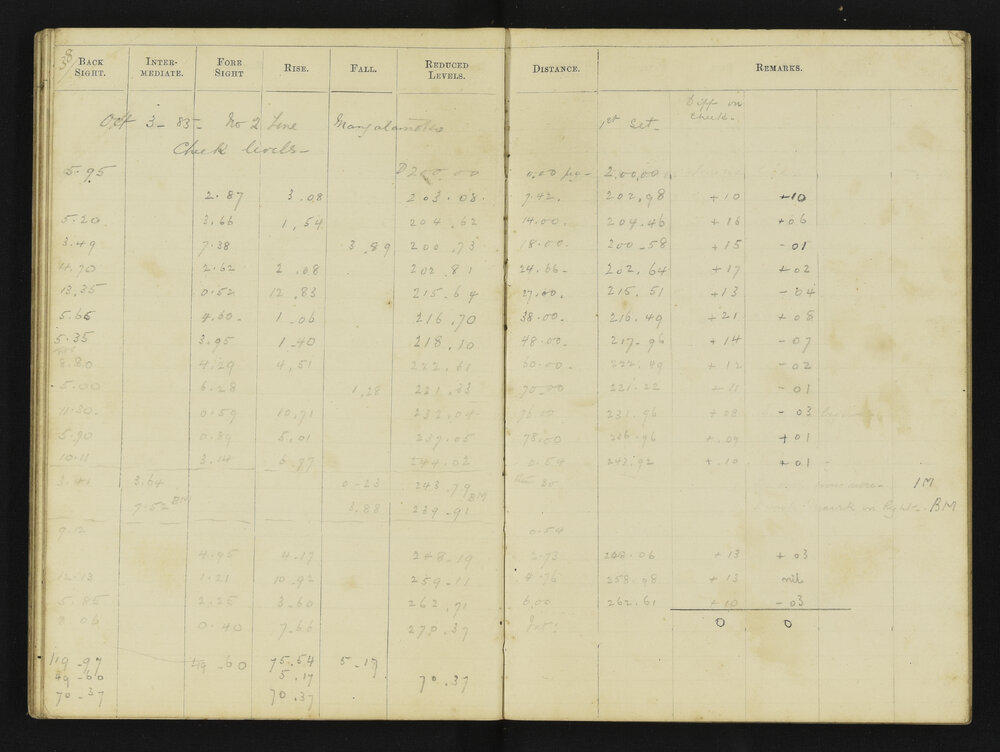 38
BACK SIGHT. INTERMEDIATE. FORE SIGHT RISE. FALL. REDUCED LEVELS. DISTANCE. REMARKS.
Oct 3 - 85 - No 2 Line
Check levels - 1st Set - Diff on Check -
5.95 200.00 0.00 peg - 200.00
2.87 3.08 203.08 7.42 202.98 +10 +10
5.20 3.66 1.54 204.62 14.00 204.46 +16 +06
3.49 7.38 3.89 200.73 18.00 200.58 +15 -01
4.70 2.62 2.08 202.81 24.66 202.64 +17 +02
13.35 0.52 12.83 215.64 27.00 215.51 +13 -04
5.66 4.60 1.06 216.70 38.00 216.49 +21 +08
5.35 3.95 1.40 218.10 48.00 217.96 +14 -07
8.80 4.29 4.51 222.61 60.00 222.49 +12 -02
5.00 6.28 1.28 221.33 70.00 221.22 +11 -01
11.30 0.59 10.71 232.04 76.00 231.96 +08 -03
5.90 0.89 5.01 237.05 78.00 236.96 +09 +01
10.11 3.14 6.97 244.02 0.54 243.92 +10 +01
3.41 3.64 0-23 243.79 1M
7.52 BM 3.88 239-91 BM mark on Right - BM
9.12 0.54
4.95 4-17 248-19 2.73 248.06 +13 +03
12.13 1.21 10.92 259-11 4.76 258.98 +13 nil
5.85 2.25 3-60 262.71 6.00 262.61 +10 -03
8.06 0.40 7.66 270.37 0 0
119-97 49-60 75.54 5-17
49-60 5.17 70.37
70-37 70.37